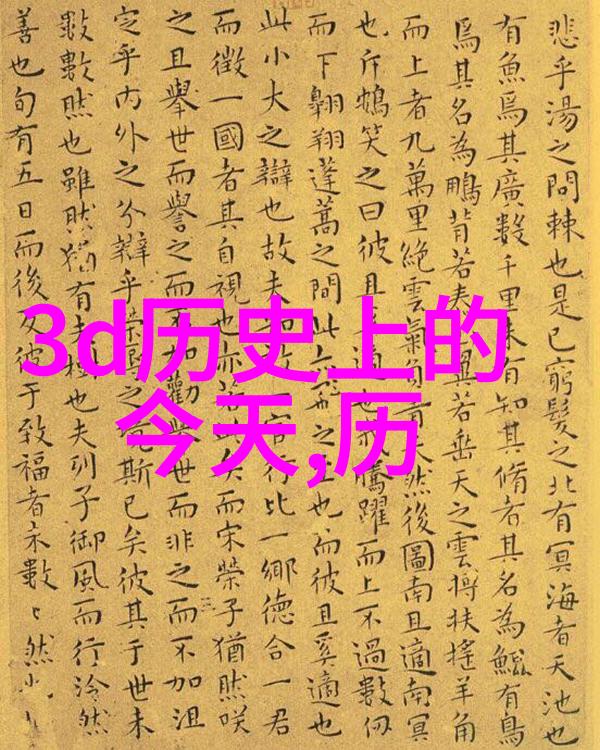 悲乎湯之問棘也是已窮髮之北有冥海者天池也
有魚焉其廣數千里未有知其脩者其名為鯤有鳥
焉其名為鵬背若泰翼若垂天之雲摶扶搖羊角
而上者九萬里絕雲氣負青天然後圖南且適南冥
也斥鴳笑之曰彼且奚適也我騰躍而上不過數仞
而下翱翔蓬蒿之間此亦飛之至也而彼且奚適也
此小大之辯也故夫知效一官行比一鄉德合一君
而徵一國者其自視也亦若此矣而宋榮子猶然咲
之且舉世而譽之而不加勸舉世而非之而不加沮
定乎內外之分辯乎榮辱之竟斯已矣彼其于世未
數數然也雖然猶有未樹也夫列子御風而行泠然
善也旬有五日而後反彼于致福者未數〻然也
3d历史上的
今天,历